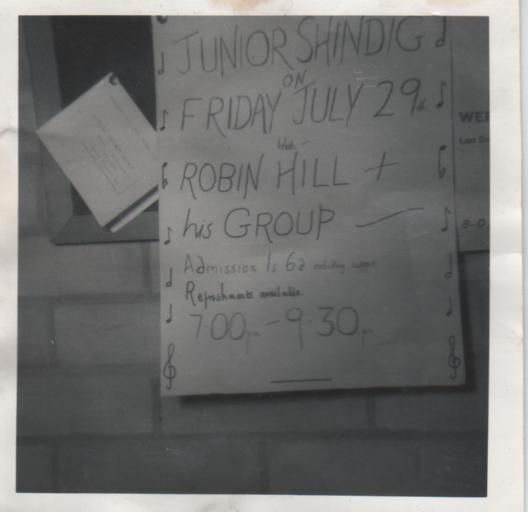 JUNIOR SHINDIG
ON
FRIDAY JULY 29
With
ROBIN HILL +
his GROUP
Admission Is 6d including supper
Refreshments available
7.00pm - 9.30pm
WEE
Last